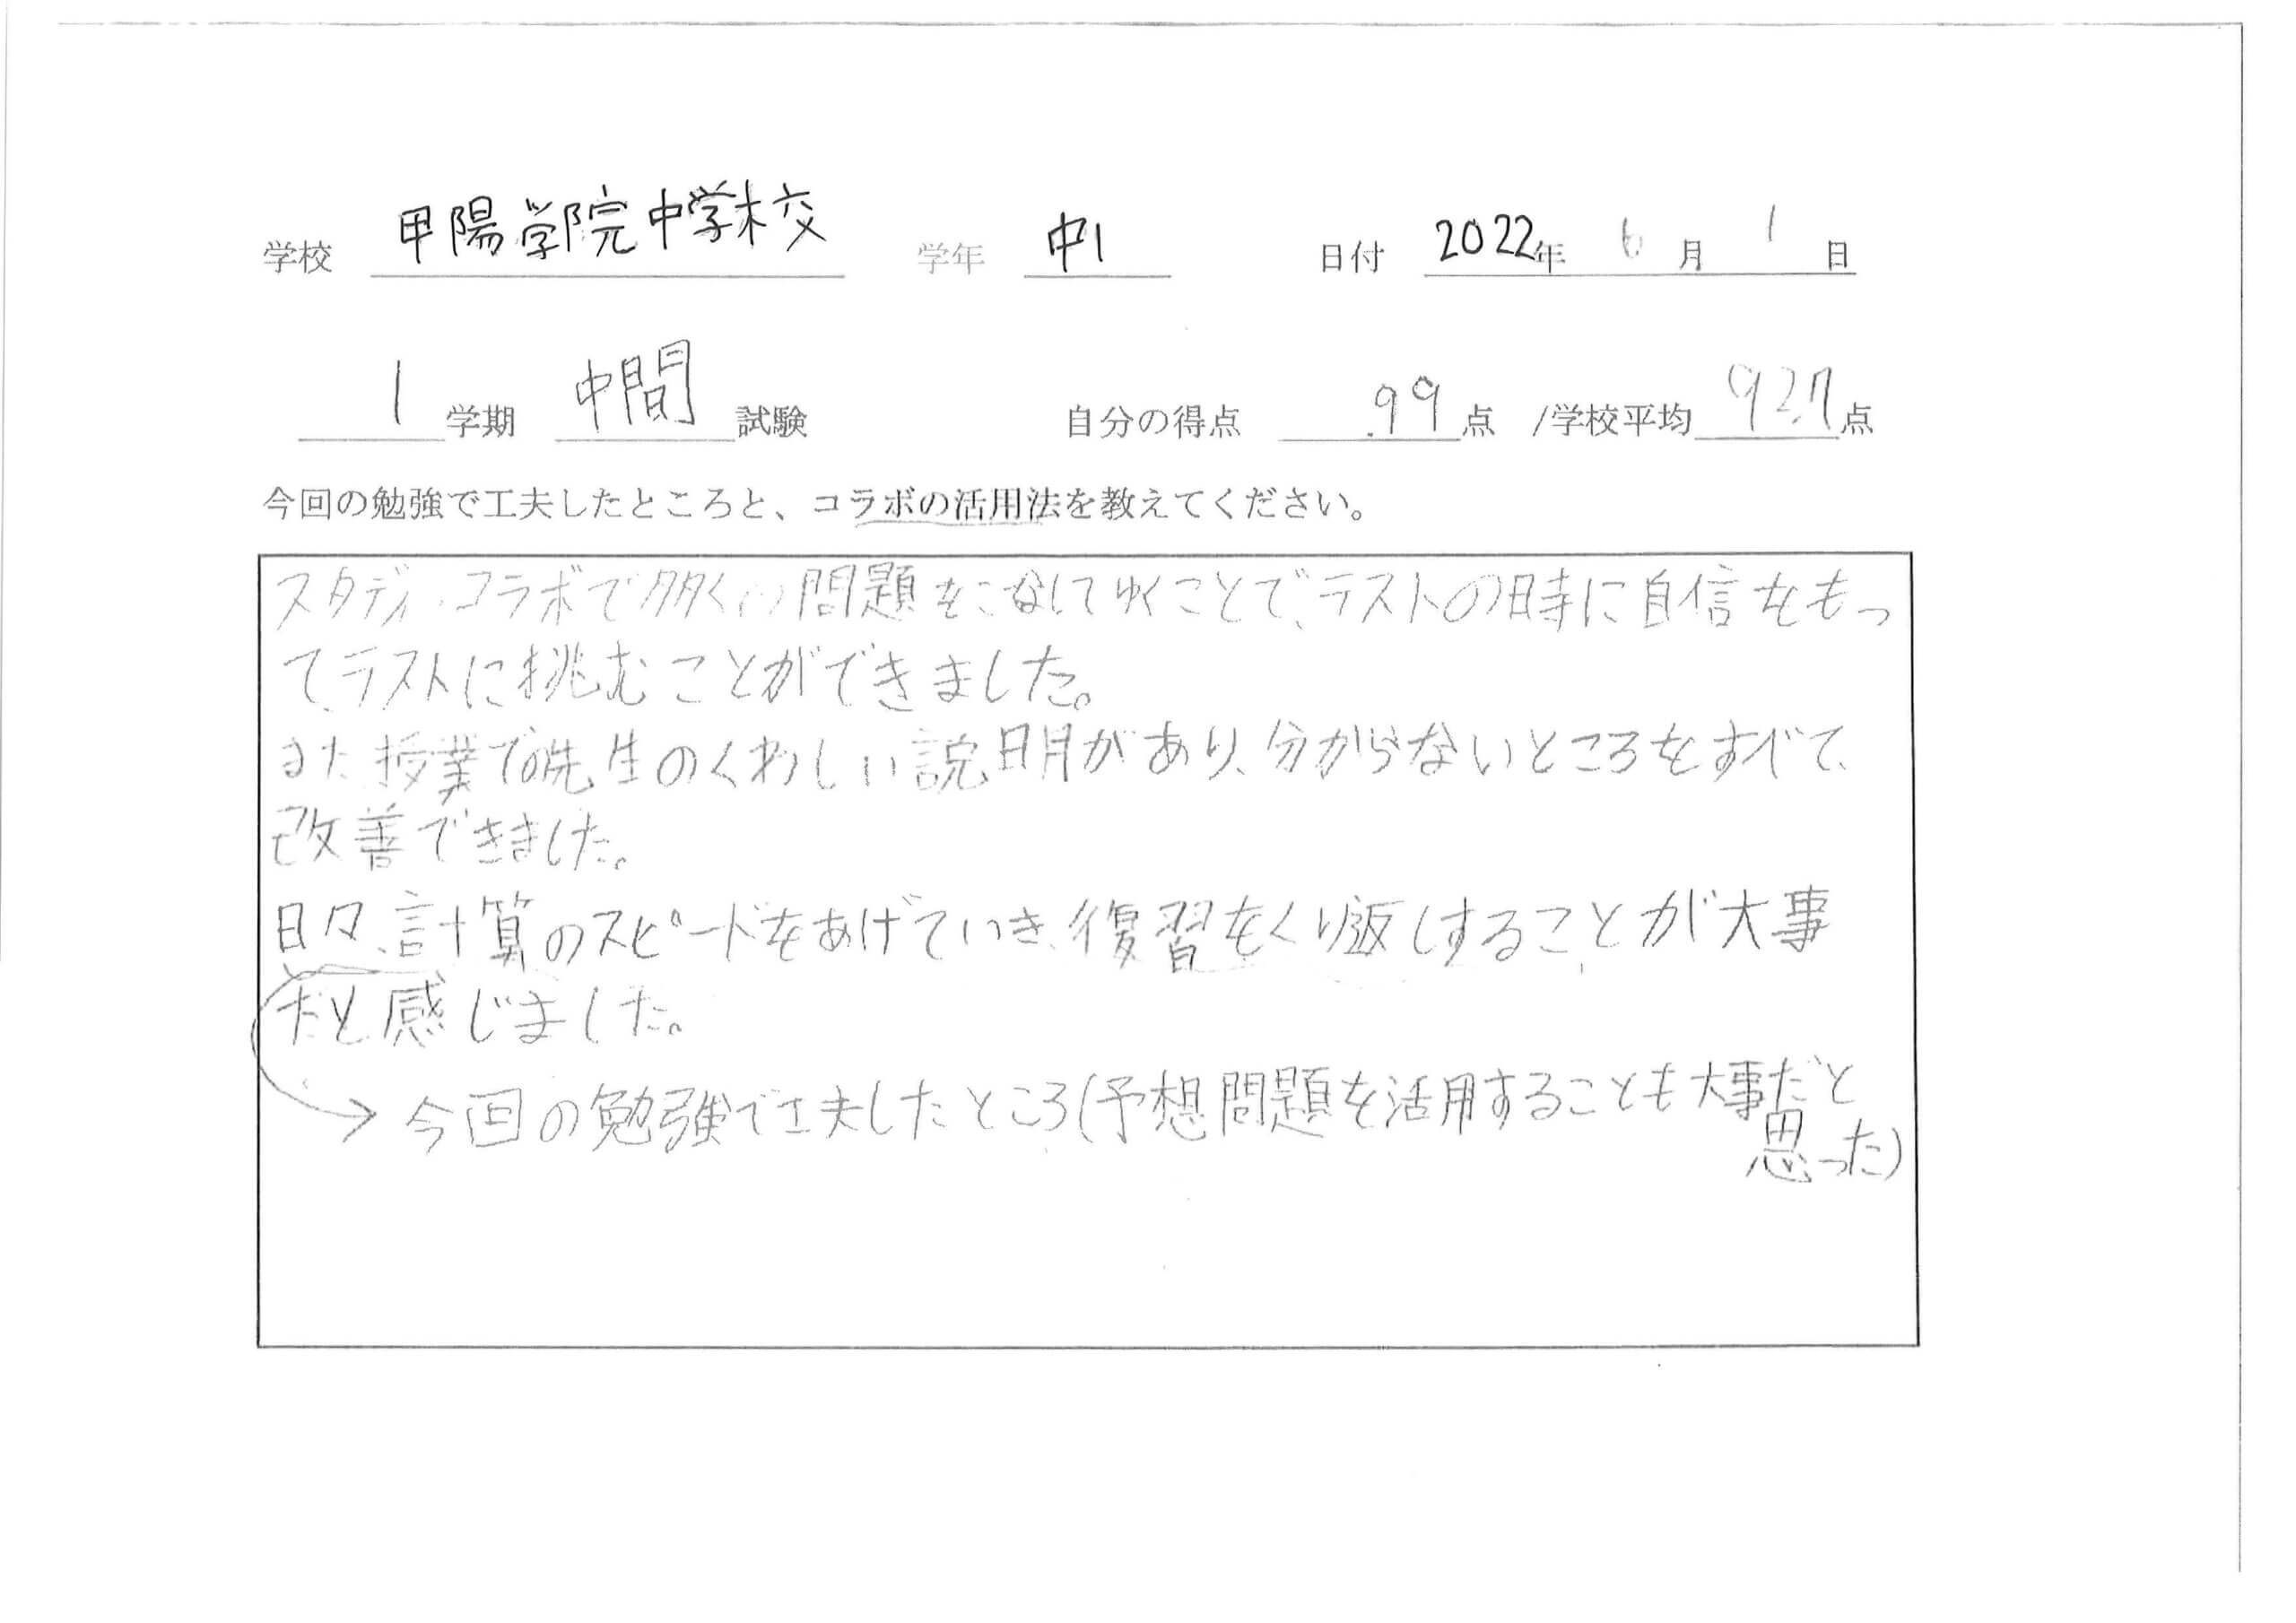 学校 甲陽学院中学校 学年 中1 日付 2022年 6月 1日
1学期 中間試験 自分の得点 99点 /学校平均 92.7点
今回の勉強で工夫したところと、コラボの活用法を教えてください。
スタディ・コラボで多くの問題をこなしてゆくことで、テストの時に自信をもっ
て、テストに挑むことができました。
また授業で先生のくわしい説明があり、分からないところをすべて、
改善できました。
日々、計算のスピードをあげていき、復習をくり返しすることが大事
だと感じました。
→ 今回の勉強で工夫したところ(予想問題を活用することも大事だと
思った)